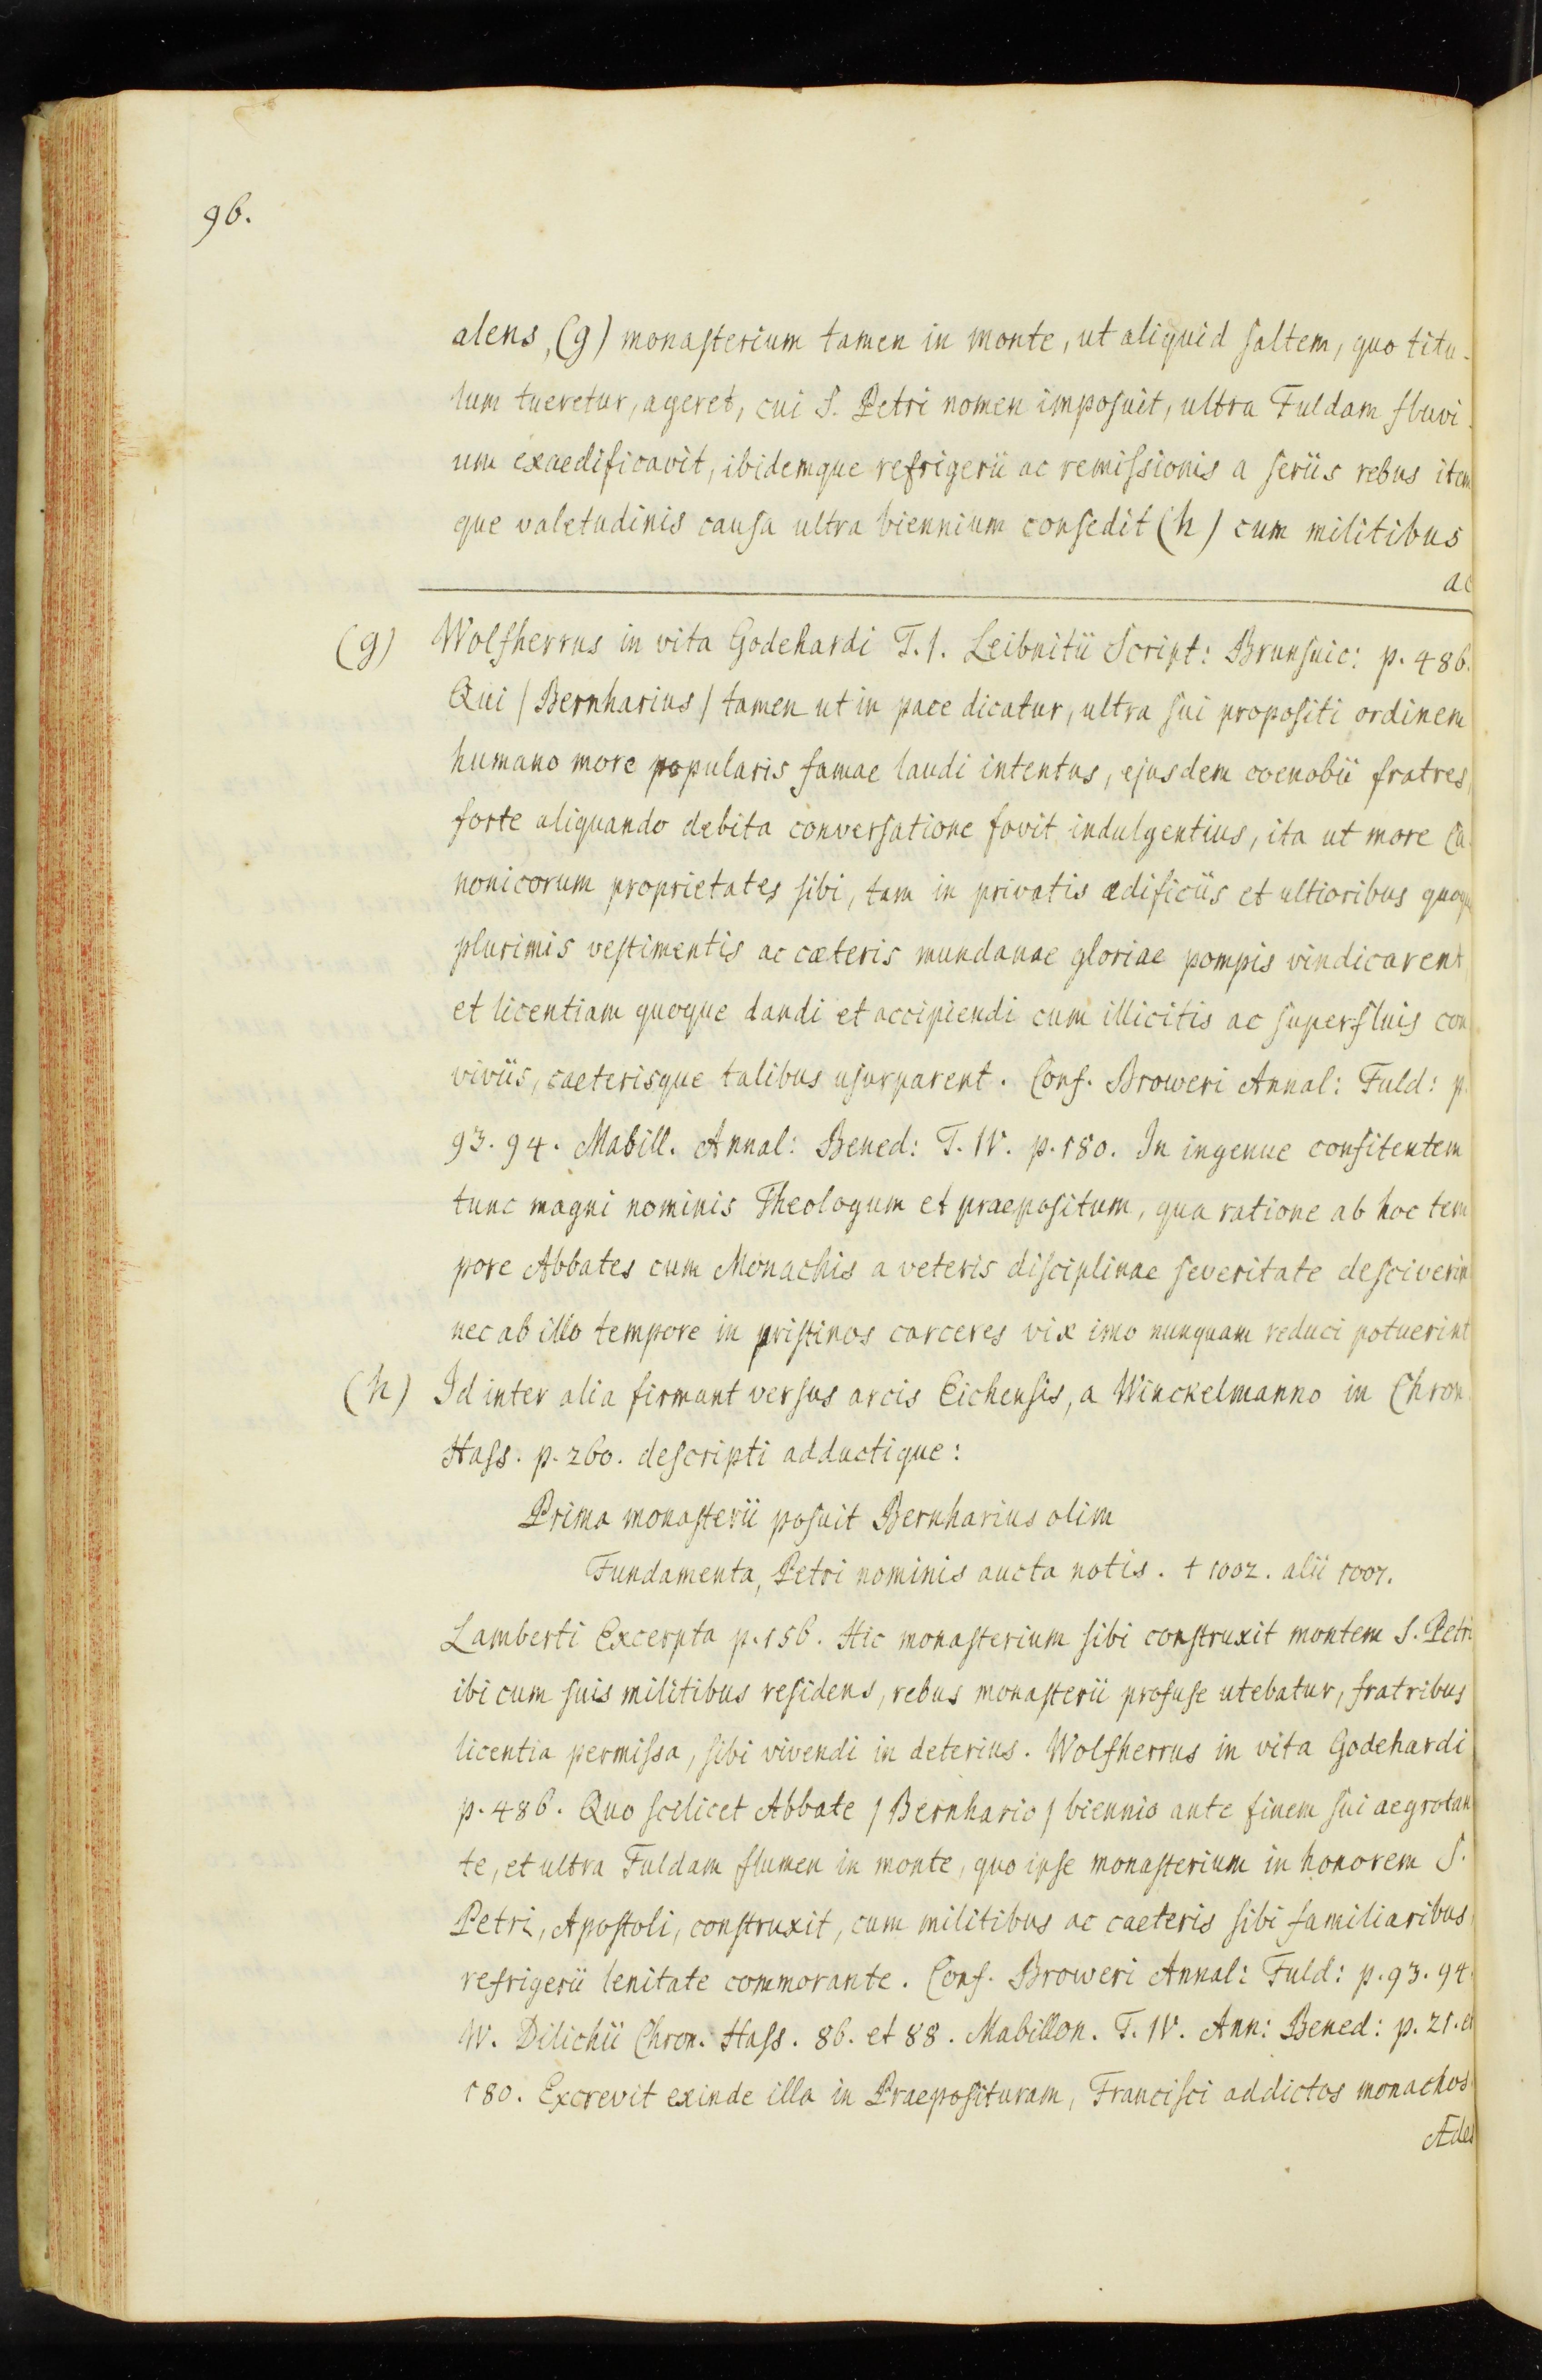 96.
alens, (g) monasterium tamen in monte, ut aliquid saltem, quo titu-
lum tueretur, ageret, cui S. Petri nomen imposuit, ultra Fuldam fluvi-
um exaedificavit, ibidemque refrigerii ac remissionis a seriis rebus item
que valetudinis causa ultra biennium consedit (h) cum militibus
ac
(g) Wolfherrus in vita Godehardi T. 1. Leibnitii Script: Brunsuic: p. 486.
Qui / Bernharius / tamen ut in pace dicatur, ultra sui propositi ordinem
humano more popularis famae laudi intentus, ejusdem coenobii fratres
forte aliquando debita conversatione fovit indulgentius, ita ut more Ca-
nonicorum proprietates sibi, tam in privatis ædificiis et ultioribus quoque
plurimis vestimentis ac cæteris mundanae gloriae pompis vindicarent
et licentiam quoque dandi et accipiendi cum illicitis ac superfluis con
viviis, caeterisque talibus usurparent. Conf. Broweri Annal: Fuld: p.
93. 94. Mabill. Annal: Bened: T. IV. p. 180. In ingenue confitentem
tunc magni nominis Theologum et praepositum, qua ratione ab hoc tem
pore Abbates cum Monachis a veteris disciplinae severitate desciverin
nec ab illo tempore in pristinos carceres vix imo nunquam reduci potuerint
(h) Id inter alia firmant versus arcis Eichensis, a Winckelmanno in Chron
Hass. p. 260. descripti adductique:
Prima monasterii posuit Bernharius olim
Fundamenta, Petri nominis aucta notis. † 1002. alii 1007.
Lamberti Excerpta p. 156. Hic monasterium sibi construxit montem S. Petri
ibi cum suis militibus residens, rebus monasterii profuse utebatur, fratribus
licentia permissa, sibi vivendi in deterius. Wolfherrus in vita Godehardi
p. 486. Quo scilicet Abbate / Bernhario / biennio ante finem sui aegrotan
te, et ultra Fuldam flumen in monte, quo ipse monasterium in honorem S.
Petri, Apostoli, construxit, cum militibus ac caeteris sibi familiaribus
refrigerii lenitate commorante. Conf. Broweri Annal: Fuld: p. 93. 94.
W. Dilichii Chron. Hass. 86. et 88. Mabillon. T. IV. Ann: Bened: p. 21. et
180. Excrevit exinde illa in Praeposituram, Francisci addictos monachos
Ades